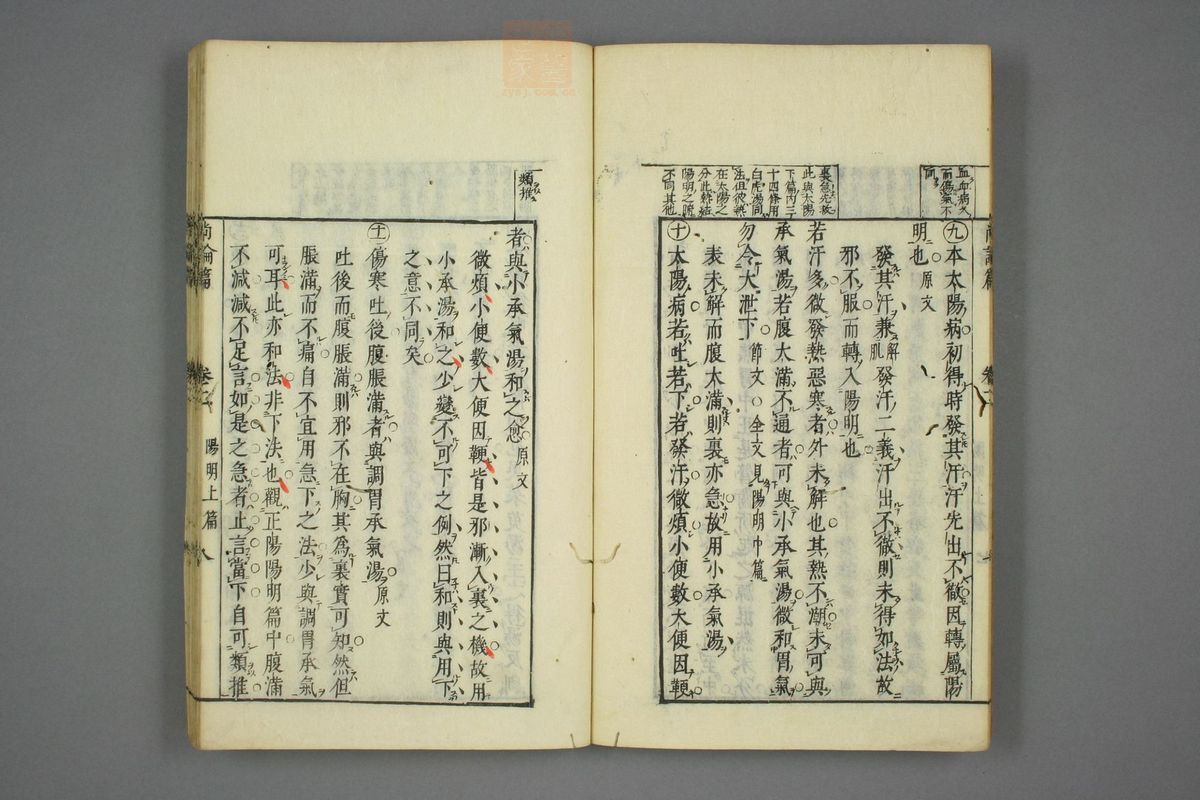 尚論篇
卷二
血血病又
而傷氣不
同
裏急先救
此與太陽
下篇內三
十四條用
白虎湯同
法但彼熱
在太陽之
分此熱結
陽明之腑
不同其他
九本太陽病初得時發其汗汗先出不徹因轉屬陽
明也 原文
發其汗兼解肌發汗二義汗出不徹則未得如法故
邪不服而轉入陽明也
若汗多微發熱惡寒者外未解也其熱不潮未可與
承氣湯若腹大滿不通者可與小承氣湯微和胃氣
勿令大泄下 節文 ○全文見陽明中篇
表未解而腹大滿則裏亦急故用小承氣湯
十太陽病若吐若下若發汗微煩小便數大便因鞕
類推
者與小承氣湯和之愈 原文
微煩小便數大便因鞕皆是邪漸入裏之機故用
小承湯和之少變不可下之例然曰和則與用下
之意不同矣
十一傷寒吐後腹脹滿者與調胃承氣湯 原文
吐後而腹脹滿則邪不在胸其為裏實可知然但
脹滿而不痛自不宜用急下之法少與調胃承氣
可耳此亦和法非下法也觀正陽陽明篇中腹滿
不減減不足言如是之急者止言當下自可類推
尚論篇
卷二
陽明上篇